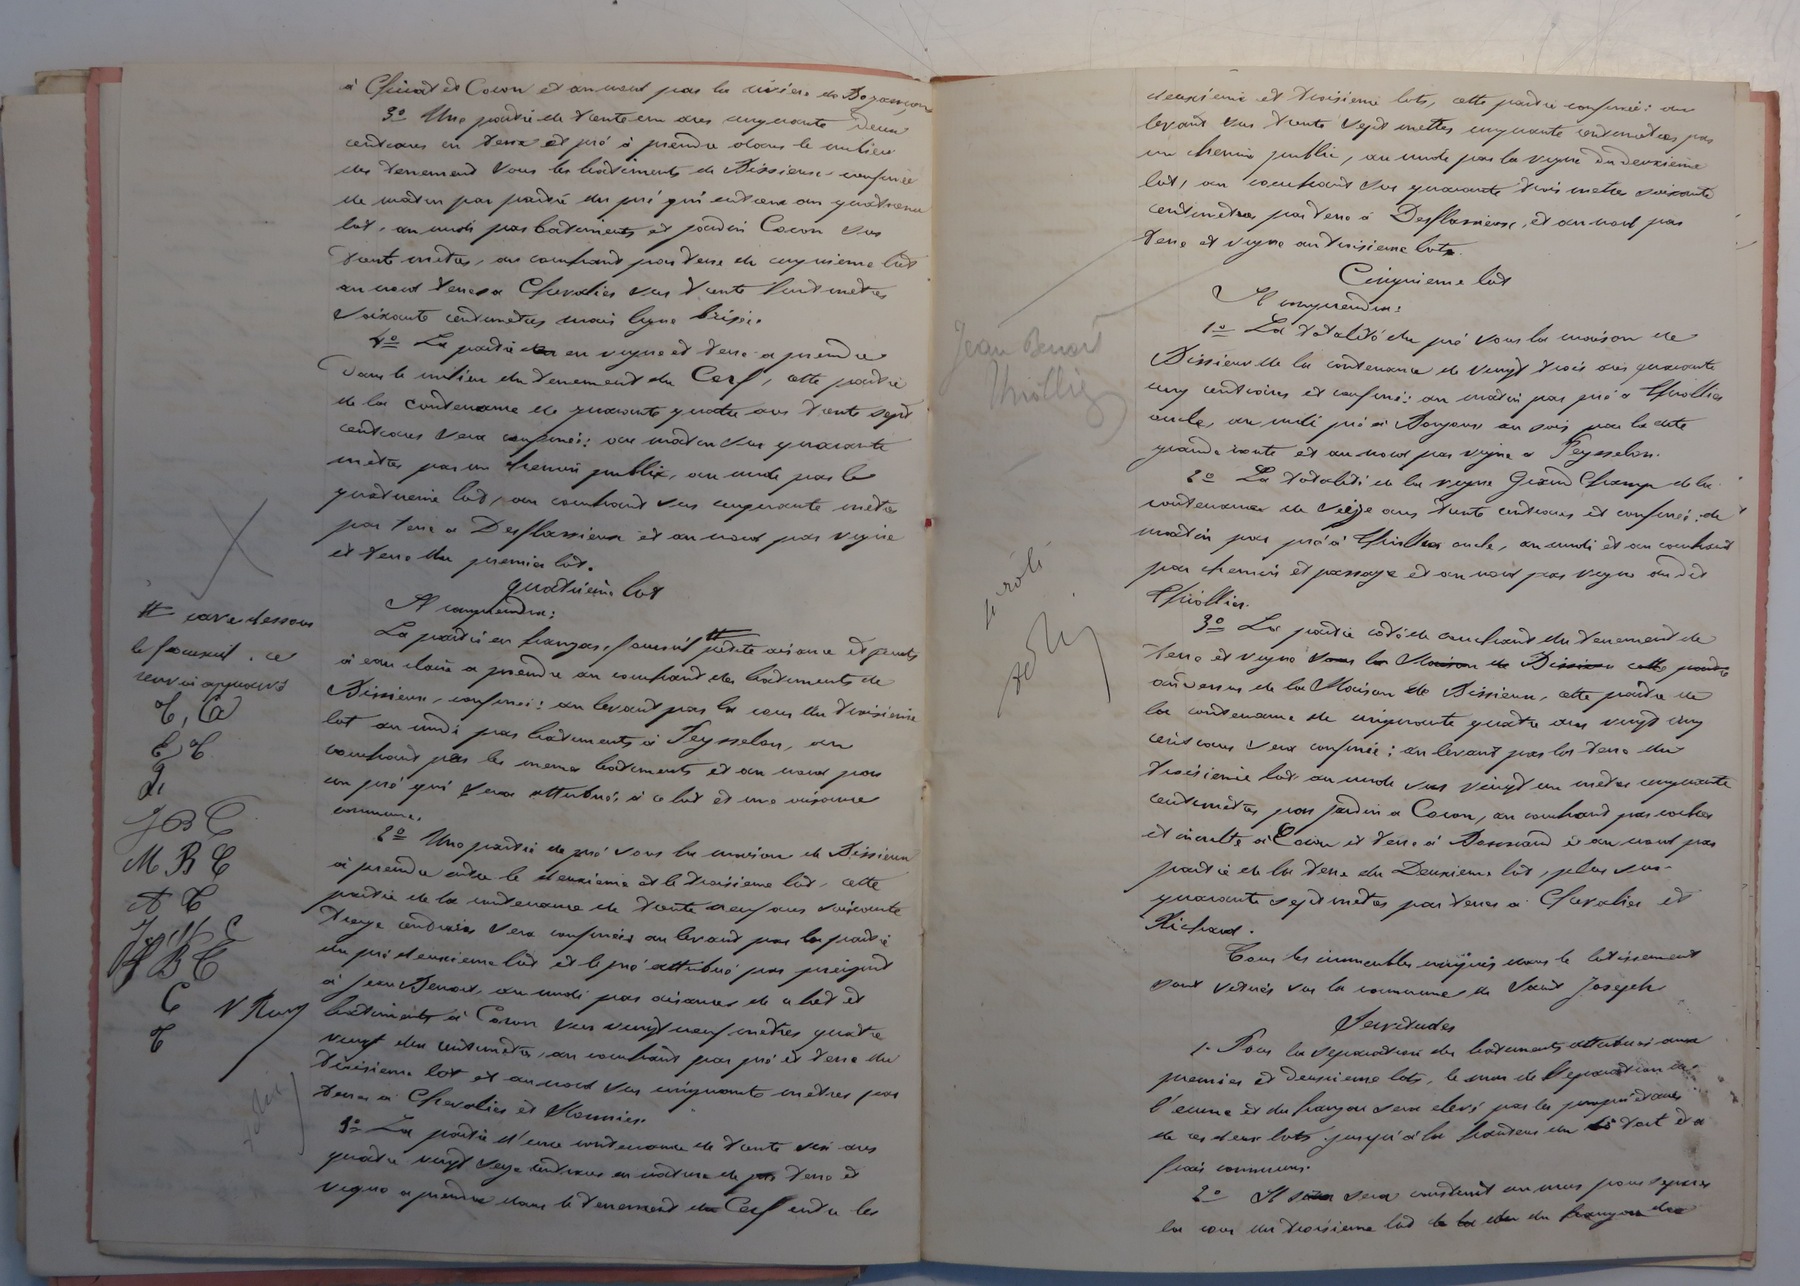 à Chirat et Coron et au nord par la rivière de Bozançon
3º Une partie de trente un ares cinquante deux
centiares en terre et pré à prendre dans le milieu
du tenement sous les bâtiments de Bissieux confinée
de matin par partie du pré qui entrera au quatrième
lot, au midi par bâtiments et jardin Coron sur
trente mètres, au couchant par terre du cinquième lot
au nord terre à Chevalier sur trente huit mètres
soixante centimètres mais ligne brisée.
4º La partie en vigne et terre à prendre
dans le milieu du tenement du Cerf, cette partie
de la contenance de quarante quatre ares trente sept
centiares sera confinée: au matin sur quarante
mètres par un chemin public, au midi par le
quatrième lot, au couchant sur cinquante mètres
par terre à Desflassieux et au nord par vigne
et terre du premier lot.
quatrième lot
Il comprendra:
La partie en hangar, fournil # petite aisance et
à eau claire à prendre au couchant des bâtiments de
Bissieux, confinée: au levant par la cour du troisième
lot au midi par bâtiments à Peysselon, au
couchant par les mêmes bâtiments et au nord par
un pré qui sera attribué à ce lot et une aisance
commune.
2º Une partie de pré sous la maison de Bissieux
à prendre entre le deuxième et le troisième lot, cette
partie de la contenance de trente neuf ares soixante
treize centiares sera confinée au levant par la partie
du pré deuxième lot et le pré attribué par préciput
à Jean Benoit, au midi par aisances de ce lot et
bâtiments à Coron sur vingt neuf mètres quatre
vingt dix centimètres, au couchant par pré et terre du
troisième lot et au nord sur cinquante mètres par
terre à Chevalier et Meunier.
3º La partie d'une contenance de trente six ares
quatre vingt seize centiares en nature de terre et
vigne à prendre dans le tenement du Cerf entre les
# cave dessous
le fournil, ce
renvoi approuvé
C, Ca
C, C
J B C
M B C
A C
J B C
C
C
deuxième et troisième lots, cette partie confinée: au
levant sur trente sept mètres cinquante centimètres par
un chemin public, au midi par la vigne du deuxième
lot, au couchant sur quarante trois mètres soixante
centimètres par terre à Desflassieux, et au nord par
terre et vigne au troisième lot.
Cinquième lot
Il comprendra:
1º La totalité du pré sous la maison de
Bissieux de la contenance de vingt trois ares quarante
cinq centiares et confiné: au matin par pré à Thiollier
oncle, au midi pré à Bonjour au soir par la dite
grande route et au nord par vigne à Peysselon.
2º La totalité de la vigne Grand Champ de la
contenance de seize ares trente centiares et confinée: de
matin par pré à Thiollier oncle, au midi et au couchant
par chemin et passage et au nord par vigne au dit
Thiollier.
3º La partie côté de couchant du tenement de
terre et vigne sous la Maison de Bissieux cette partie
au dessus de la Maison de Bissieux, cette partie de
la contenance de cinquante quatre ares vingt cinq
centiares sera confinée: au levant par la terre du
troisième lot au midi sur vingt un mètres cinquante
centimètres par jardin à Coron, au couchant par rocher
et inculte à Coron et terre à Bonnand et au nord par
partie de la terre du Deuxième lot, plus sur
quarante sept mètres par terres à Chevalier et
Richard.
Tous les immeubles compris dans le lotissement
sont situés sur la commune de Saint Joseph
Servitudes
1. Pour la séparation des bâtiments attribués aux
premier et deuxième lots, le mur de séparation de
l'écurie et du hangar sera élevé par les propriétaires
de ces deux lots jusqu'à la hauteur du toit et à
frais communs.
2º Il sera construit un mur pour séparer
la cour du troisième lot de la du hangar du
Jean Benoit
Thiollier